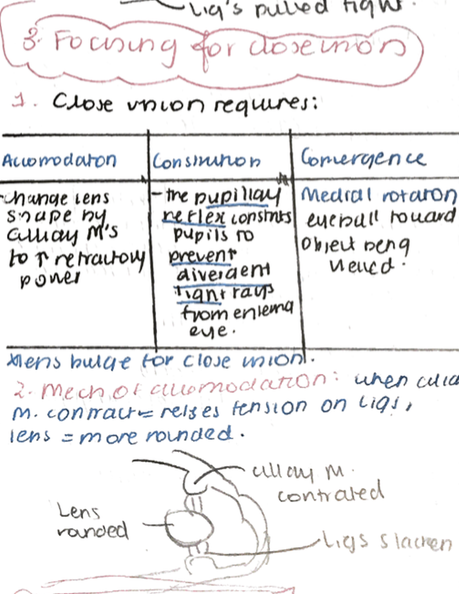 Lig's pulled tight.
3. Focusing for close vision
1. Close vision requires:
Accomodation
-Change lens
shape by
ciliary M's
to ↑ refractory
power
Constriction
-the pupillary
reflex constricts
pupils to
prevent
divergent
light rays
from entering
eye.
Convergence
Medial rotation
eyeball toward
object being
viewed.
*lens bulge for close vision.
2. Mech of accomodation: when cilia
m. contract = relses tension on Ligs,
lens = more rounded.
ciliary m.
contrated
Lens
rounded
Ligs slacken